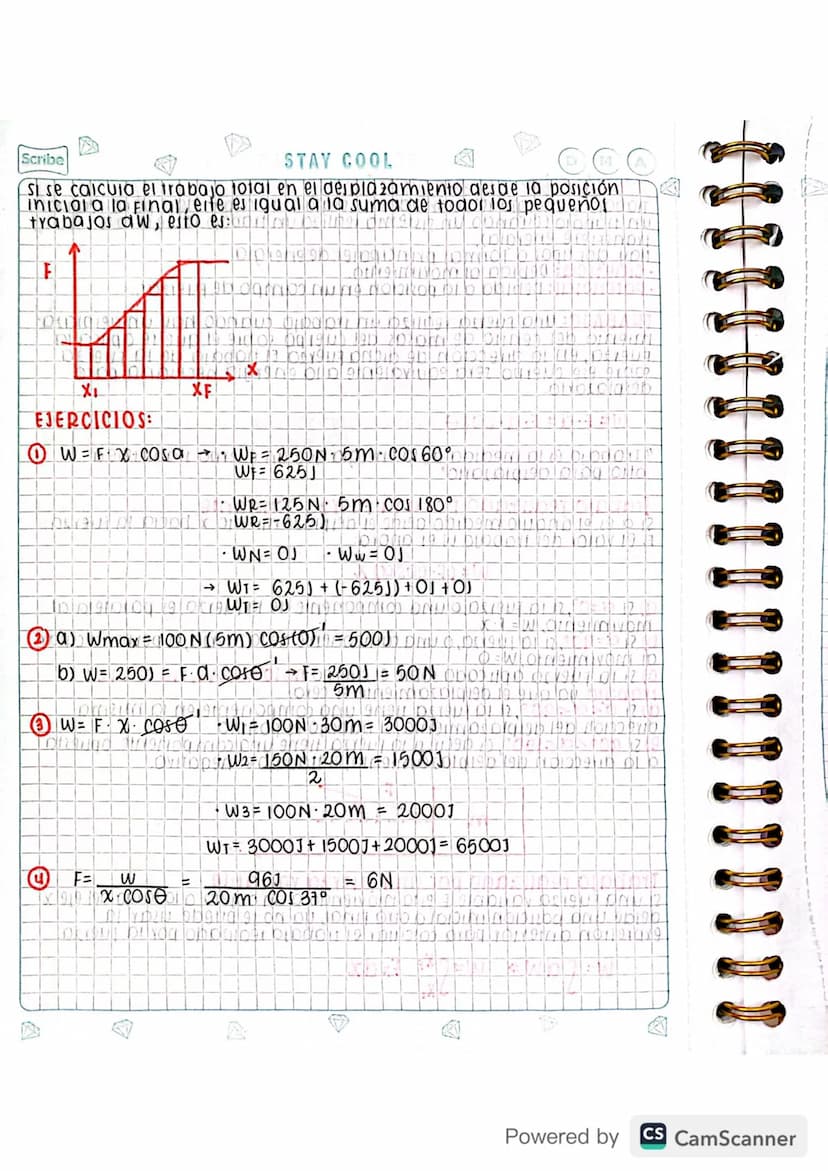 Scribe
STAY COOL
D M A
Si se calcula el trabajo total en el desplazamiento desde la posición
inicial a la final, este es igual a la suma de todos los pequeños
trabajos dW, esto es:
F
X
Xi XF
EJERCICIOS:
① W = F · x · cos α → · WF = 250N · 5m · cos 60°
WF = 625J
· WR = 125N · 5m · cos 180°
WR = -625J
· WN = 0J · Ww = 0J
→ WT = 625J + (-625J) + 0J + 0J
WT = 0J
② a) Wmax = 100N (5m) cos(0)¹ = 500J
b) W = 250J = F · d · cosθ¹ → F = 250J = 50N
5m
③ W = F · x · cosθ¹ · W1 = 100N · 30m = 3000J
· W2 = 150N · 20m = 1500J
2
· W3 = 100N · 20m = 2000J
WT = 3000J + 1500J + 2000J = 6500J
④ F = W = 96J = 6N
x · cosθ 20m · cos 37°
Powered by CS CamScanner